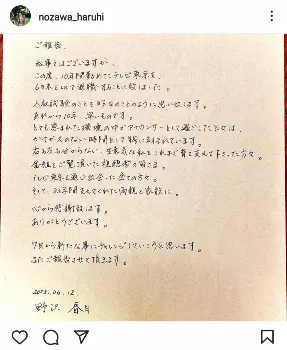 nozawa_haruhi
ご報告.
私事ではございますが、
この度、10年間勤めてテレビ東京を、
6月末をもって退職することに致しました。
入社試験のことを昨日のことのように思い出します。
あれから10年、早いものです。
とても恵まれた環境の中でアナウンサーとして過ごした日々は、
かけがえのない時間として胸に刻まれています。
右も左も分からない、未熟な私をこれまで育て支えて下さった方々。
番組をご覧頂いた視聴者の皆さま。
テレビ東京を通じ出会った全ての方々。
そして、33年間支えてくれた両親と家族に。
心から感謝致します。
ありがとうございます。
7月から新たな事にチャレンジしていこうと思います。
またご報告させて頂きます。
2023.06.12.
野沢 春日